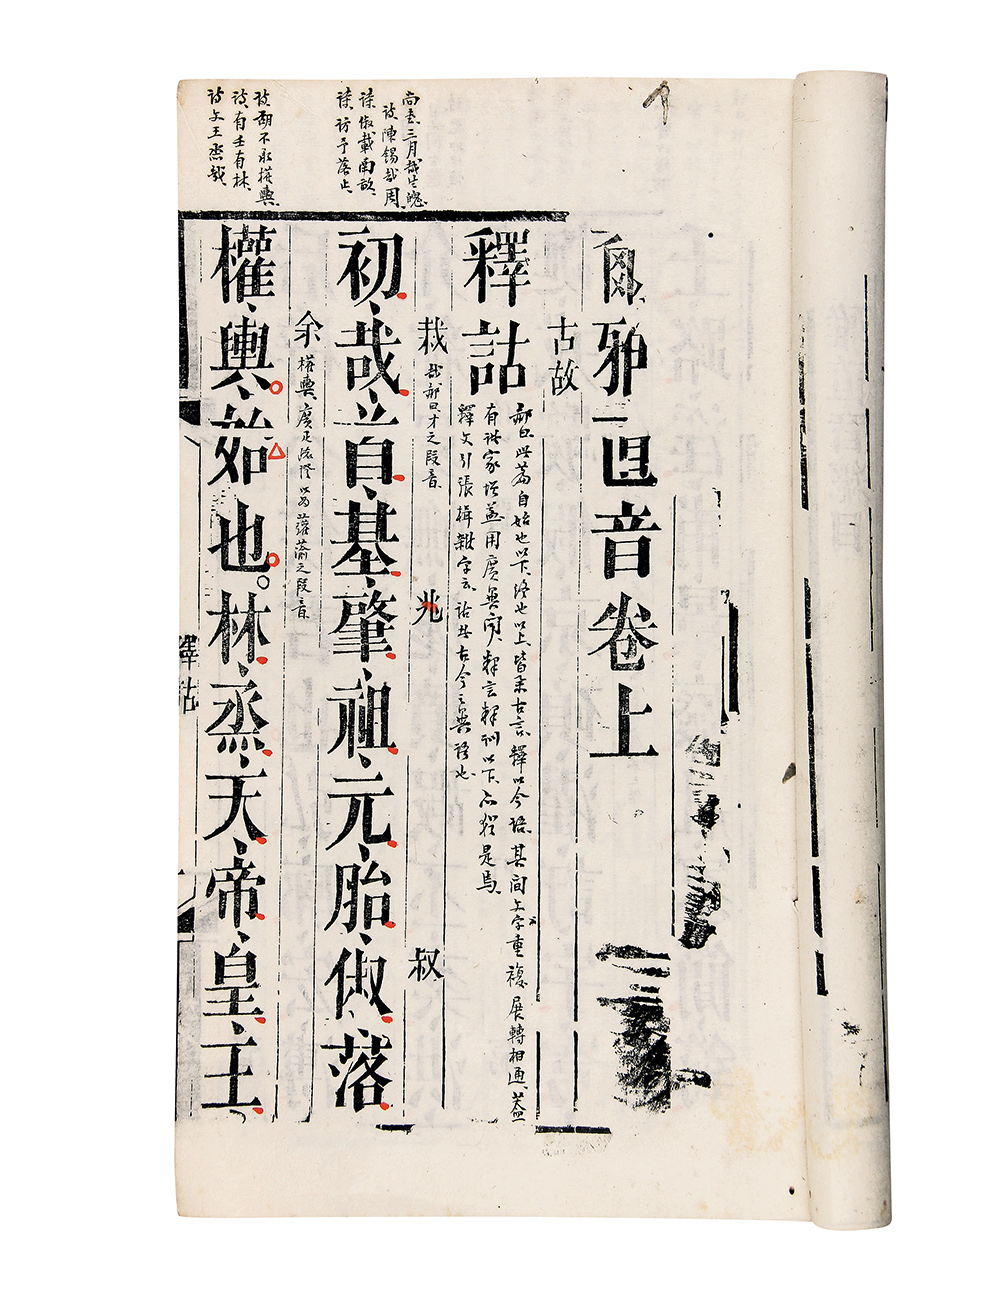 爾雅直音卷上
古故
釋詁
郝曰此篇自始也以下終也以上皆舉古言釋以今語其間文字重複展轉相通蓋
有諸家增益用廣異聞釋言釋訓以下亦猶是焉
釋文引張揖雜字云詁者古今之異語也
尚書三月哉生魄
詩陳錫哉周
詩俶載南畝
詩訪予落止
栽 哉郝曰才之叚音 兆 叔
初哉首基肇祖元胎俶落
詩胡不承權輿
詩有壬有林
詩文王烝哉
余 權輿廣疋疏證以為虇蕍之叚音
權輿始也林烝天帝皇王
釋詁